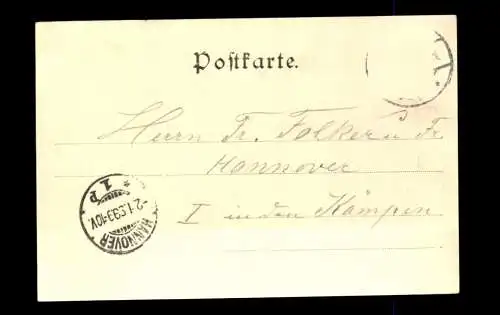 Postkarte.
Herrn Fr. Folker u Fr.
Hannover
I in den Kämpen
HANNOVER
* 1 P